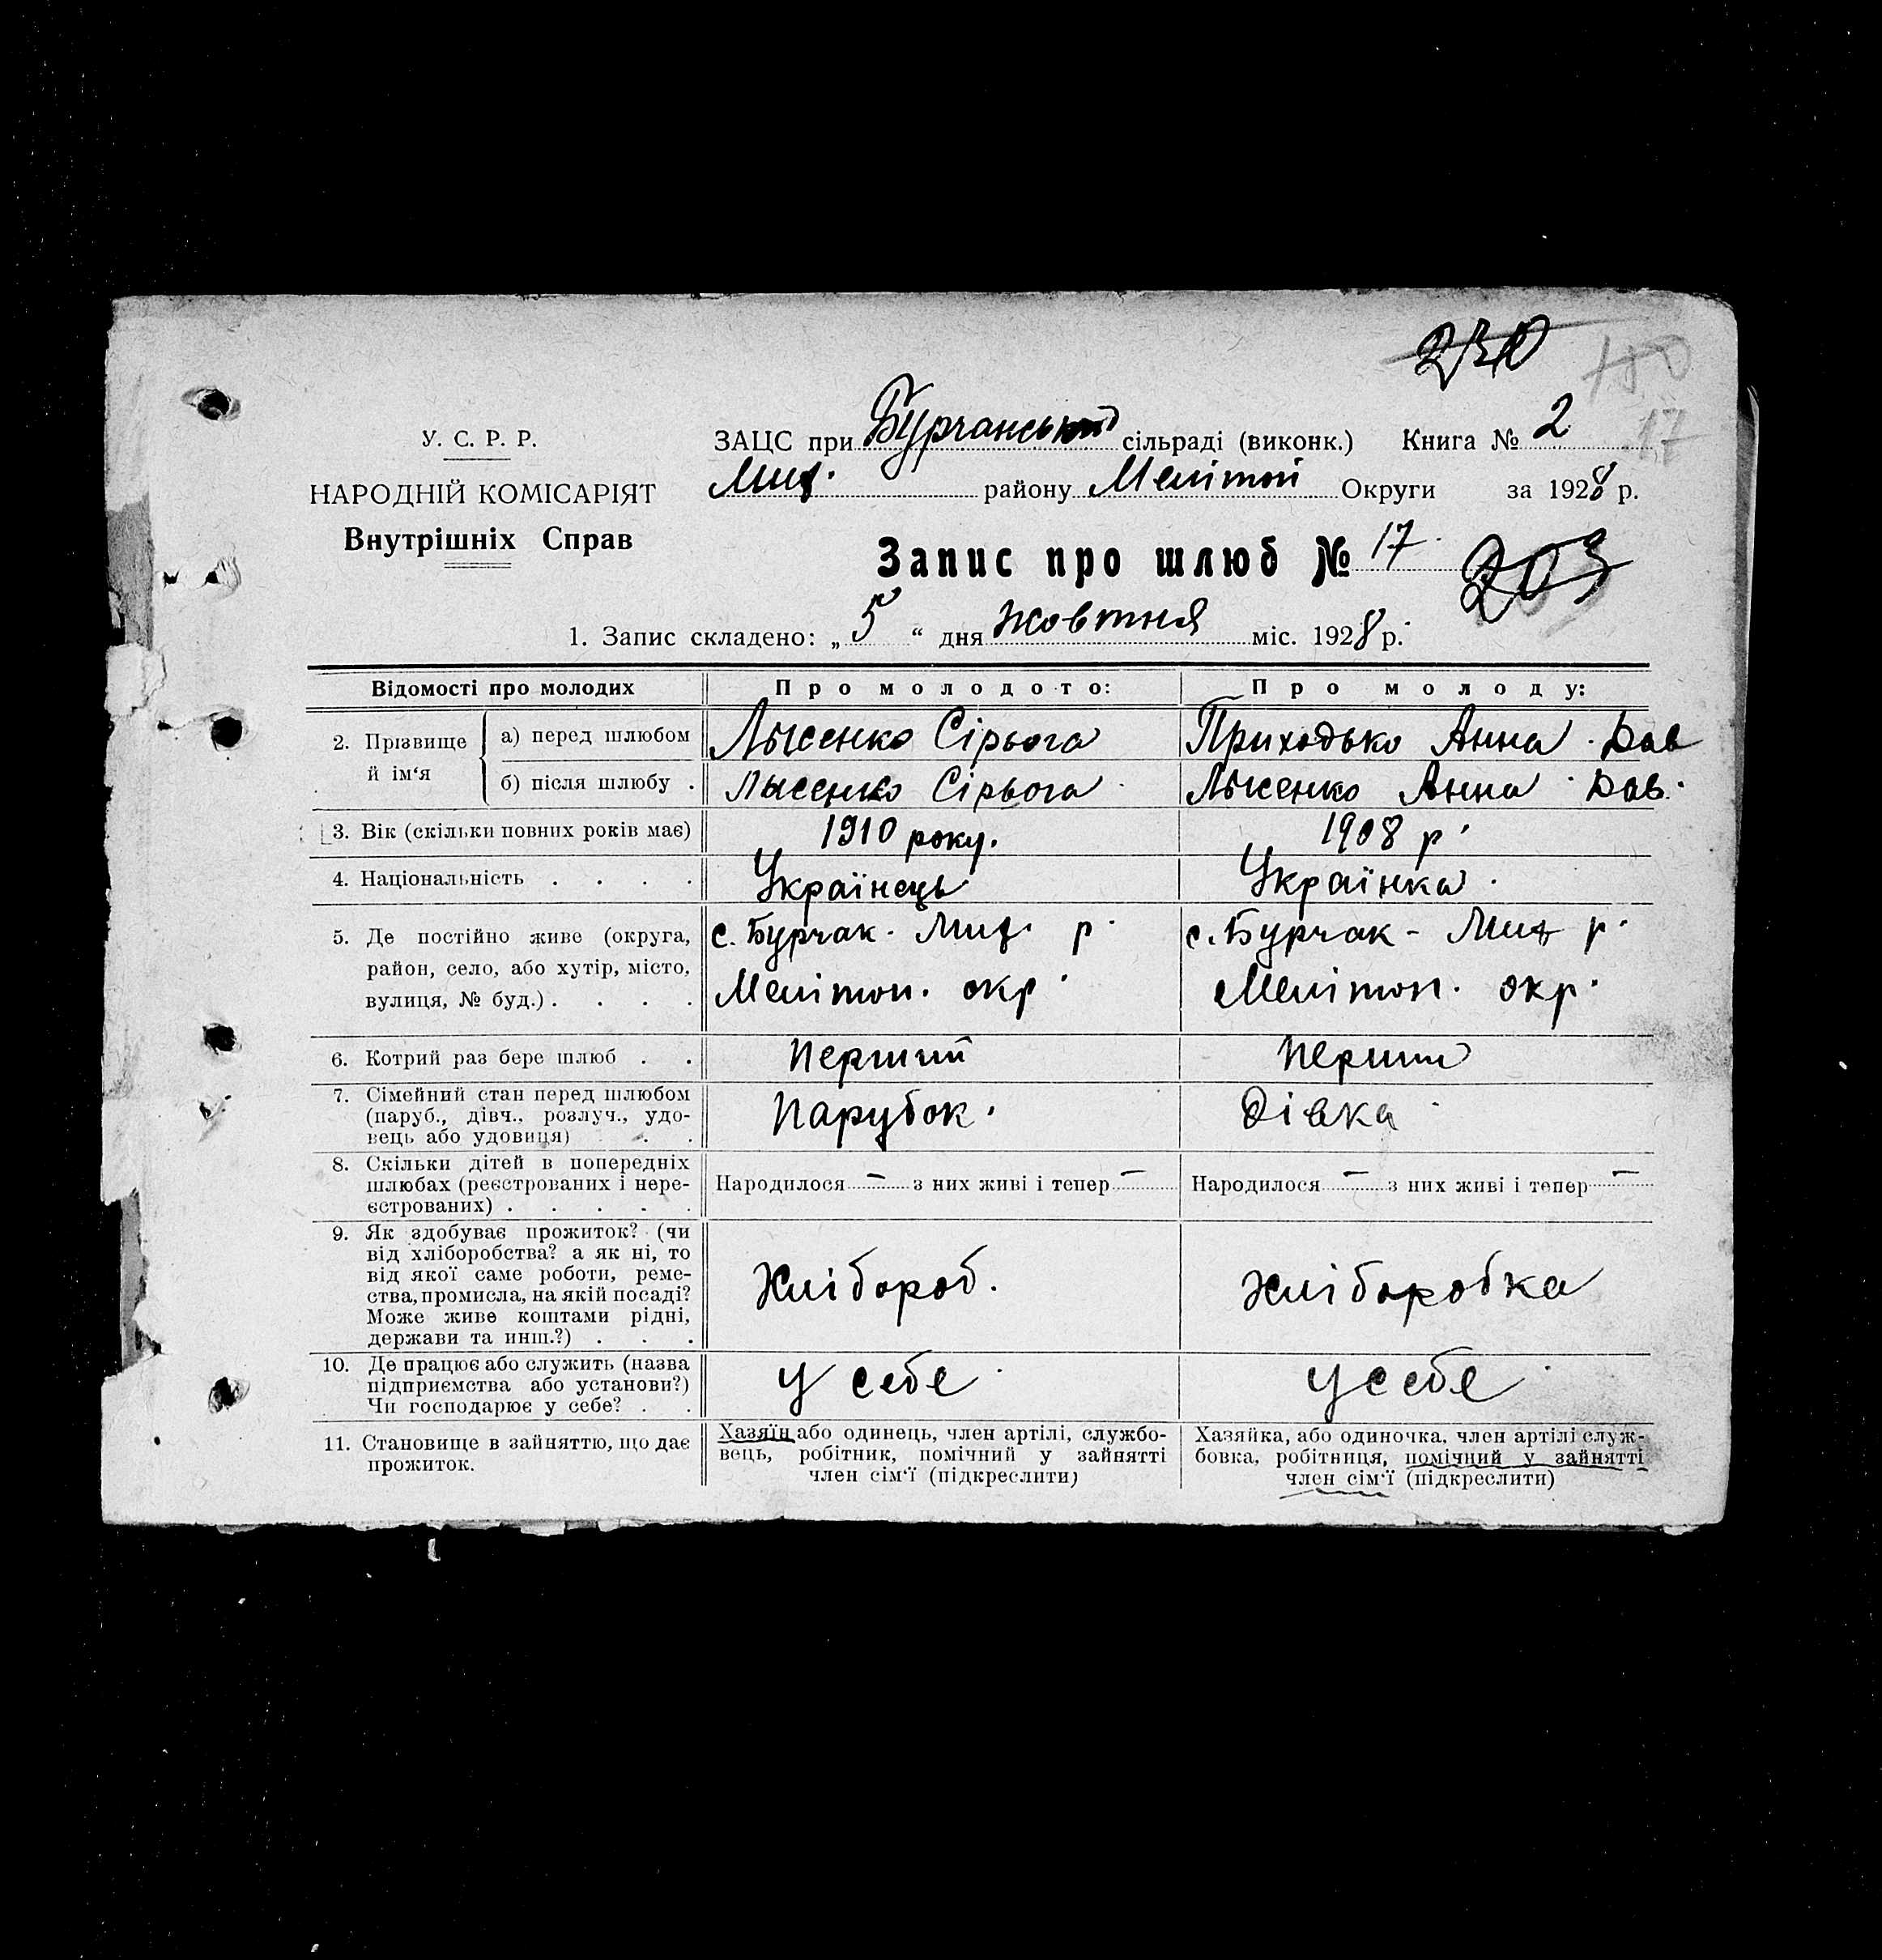 230
180
У. С. Р. Р.
ЗАЦС при Бурчанській сільраді (виконк.) Книга № 2
17
НАРОДНІЙ КОМІСАРІЯТ
Мих. району Мелітоп Округи за 1928 р.
Внутрішніх Справ
Запис про шлюб № 17
203
1. Запис складено: „ 5 “ дня жовтня міс. 1928 р.
Відомості про молодих
Про молодого:
Про молоду:
2. Прізвище й ім‘я
а) перед шлюбом
Лысенко Сірьога
Приходько Анна Дав
б) після шлюбу .
Лысенко Сірьога
Лысенко Анна Дав.
3. Вік (скільки повних років має)
1910 року.
1908 р
4. Національність . . . .
Українець
Українка
5. Де постійно живе (округа,
район, село, або хутір, місто,
вулиця, № буд.) . . . .
с. Бурчак. Мих. р.
Мелітоп. окр
с. Бурчак - Мих р.
Мелітоп. окр.
6. Котрий раз бере шлюб . .
Перший
Перший
7. Сімейний стан перед шлюбом
(паруб., дівч., розлуч., удо-
вець або удовиця) . .
Парубок.
дівка
8. Скільки дітей в попередніх
шлюбах (реєстрованих і нере-
єстрованих) . . . . .
Народилося — з них живі і тепер —
Народилося — з них живі і тепер —
9. Як здобуває прожиток? (чи
від хліборобства? а як ні, то
від якої саме роботи, реме-
ства, промисла, на якій посаді?
Може живе коштами рідні,
держави та инш.?) . . .
Хлібороб.
хліборобка
10. Де працює або служить (назва
підприємства або установи?)
Чи господарює у себе? . .
у себе
у себе
11. Становище в зайняттю, що дає
прожиток.
Хазяїн або одинець, член артілі, службо-
вець, робітник, помічний у зайнятті
член сім‘ї (підкреслити)
Хазяйка, або одиночка, член артілі служ-
бовка, робітниця, помічний у зайнятті
член сім‘ї (підкреслити)